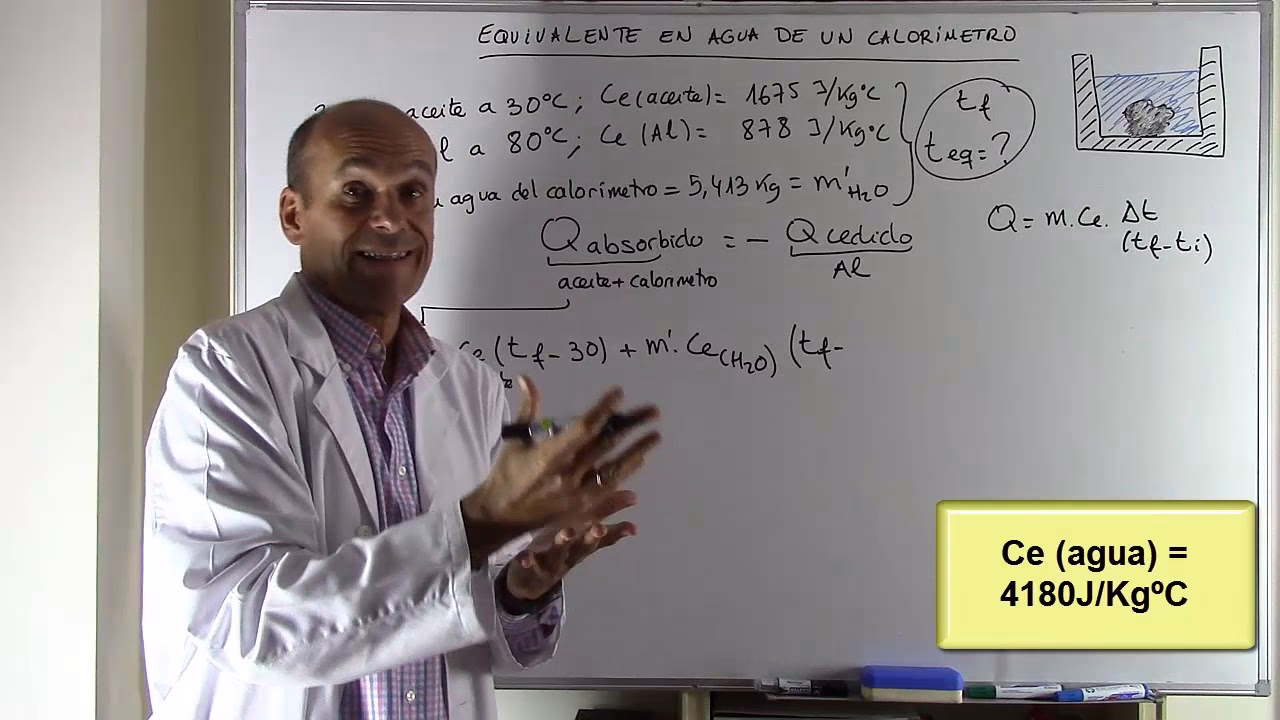 EQUIVALENTE EN AGUA DE UN CALORÍMETRO
aceite a 30ºC; Ce(aceite)= 1675 J/KgºC
a 80ºC; Ce (Al)= 878 J/KgºC
agua del calorímetro = 5,413 Kg = m'H₂O
tf
teq=?
Q absorbido = - Q cedido
aceite + calorímetro
Al
Q = m.Ce. Δt
(tf-ti)
Ce (tf - 30) + m'. Ce(H₂O) (tf-
Ce (agua) =
4180J/KgºC